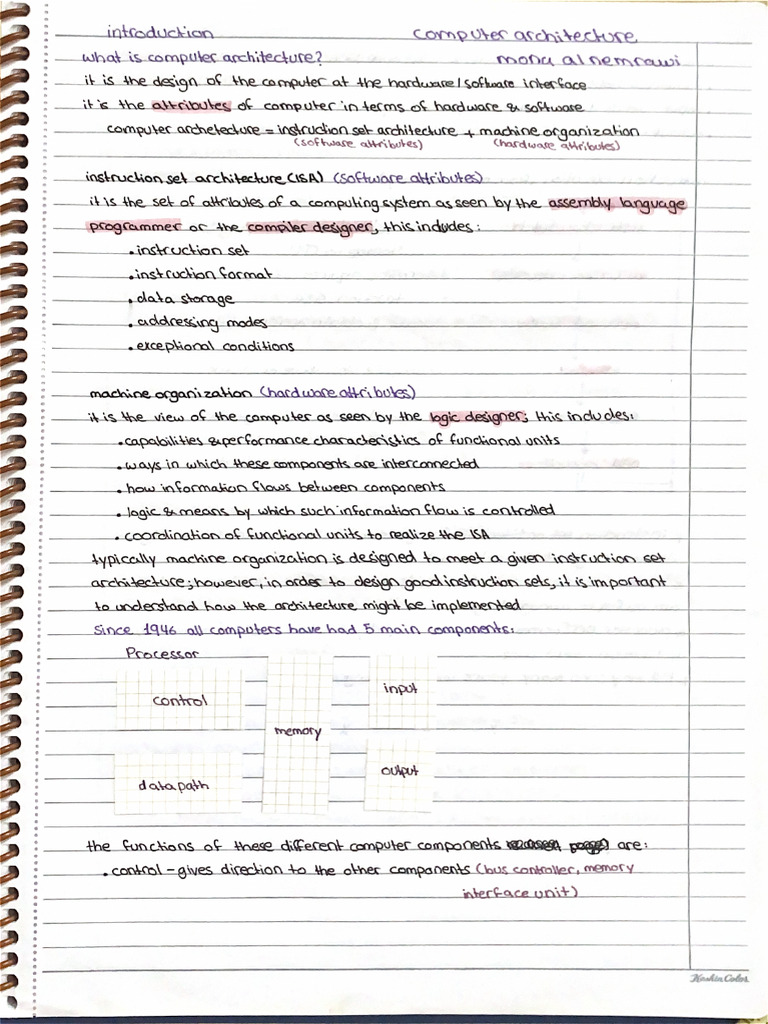 introduction computer architecture
what is computer architecture? mona al nemrawi
it is the design of the computer at the hardware/software interface
it is the attributes of computer in terms of hardware & software
computer archetecture = instruction set architecture + machine organization
(software attributes) (hardware attributes)
instruction set architecture (ISA) (software attributes)
it is the set of attributes of a computing system as seen by the assembly language
programmer or the compiler designer, this includes:
• instruction set
• instruction format
• data storage
• addressing modes
• exceptional conditions
machine organization (hardware attributes)
it is the view of the computer as seen by the logic designer; this includes:
• capabilities & performance characteristics of functional units
• ways in which these components are interconnected
• how information flows between components
• logic & means by which such information flow is controlled
• coordination of functional units to realize the ISA
typically machine organization is designed to meet a given instruction set
architecture; however, in order to design good instruction sets, it is important
to understand how the architecture might be implemented
since 1946 all computers have had 5 main components:
Processor
control
memory
input
datapath
output
the functions of these different computer components are:
• control - gives direction to the other components (bus controller, memory
interface unit)
Kashin Color